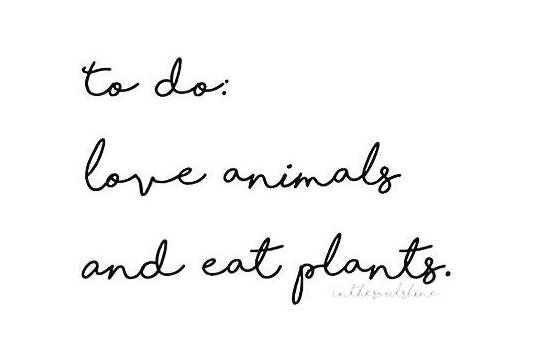 to do:
love animals
and eat plants.
inthesoulshine